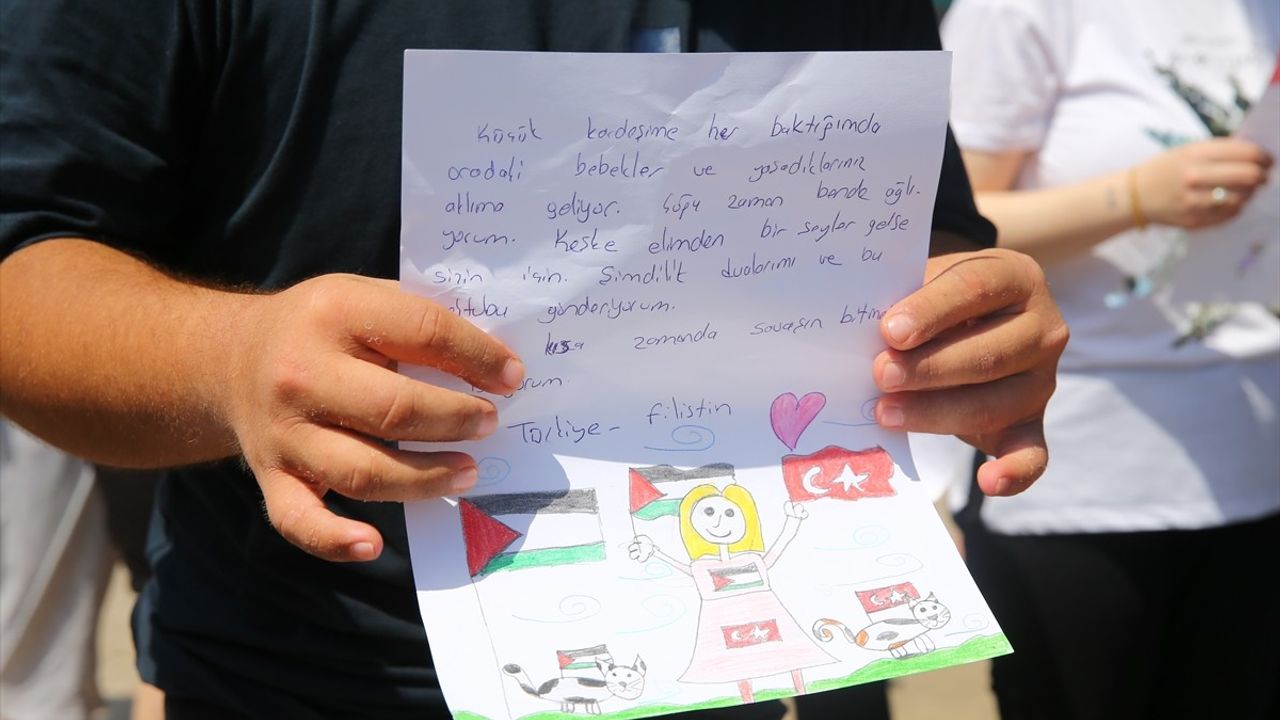 Küçük kardeşime her baktığımda
oradaki bebekler ve yaşadıklarınız
aklıma geliyor. Çoğu zaman bende ağlı-
yorum. Keşke elimden bir şeyler gelse
sizin için. Şimdilik dualarımı ve bu
ktubu gönderiyorum.
kısa zamanda savaşın bitm
orum.
Türkiye - filistin